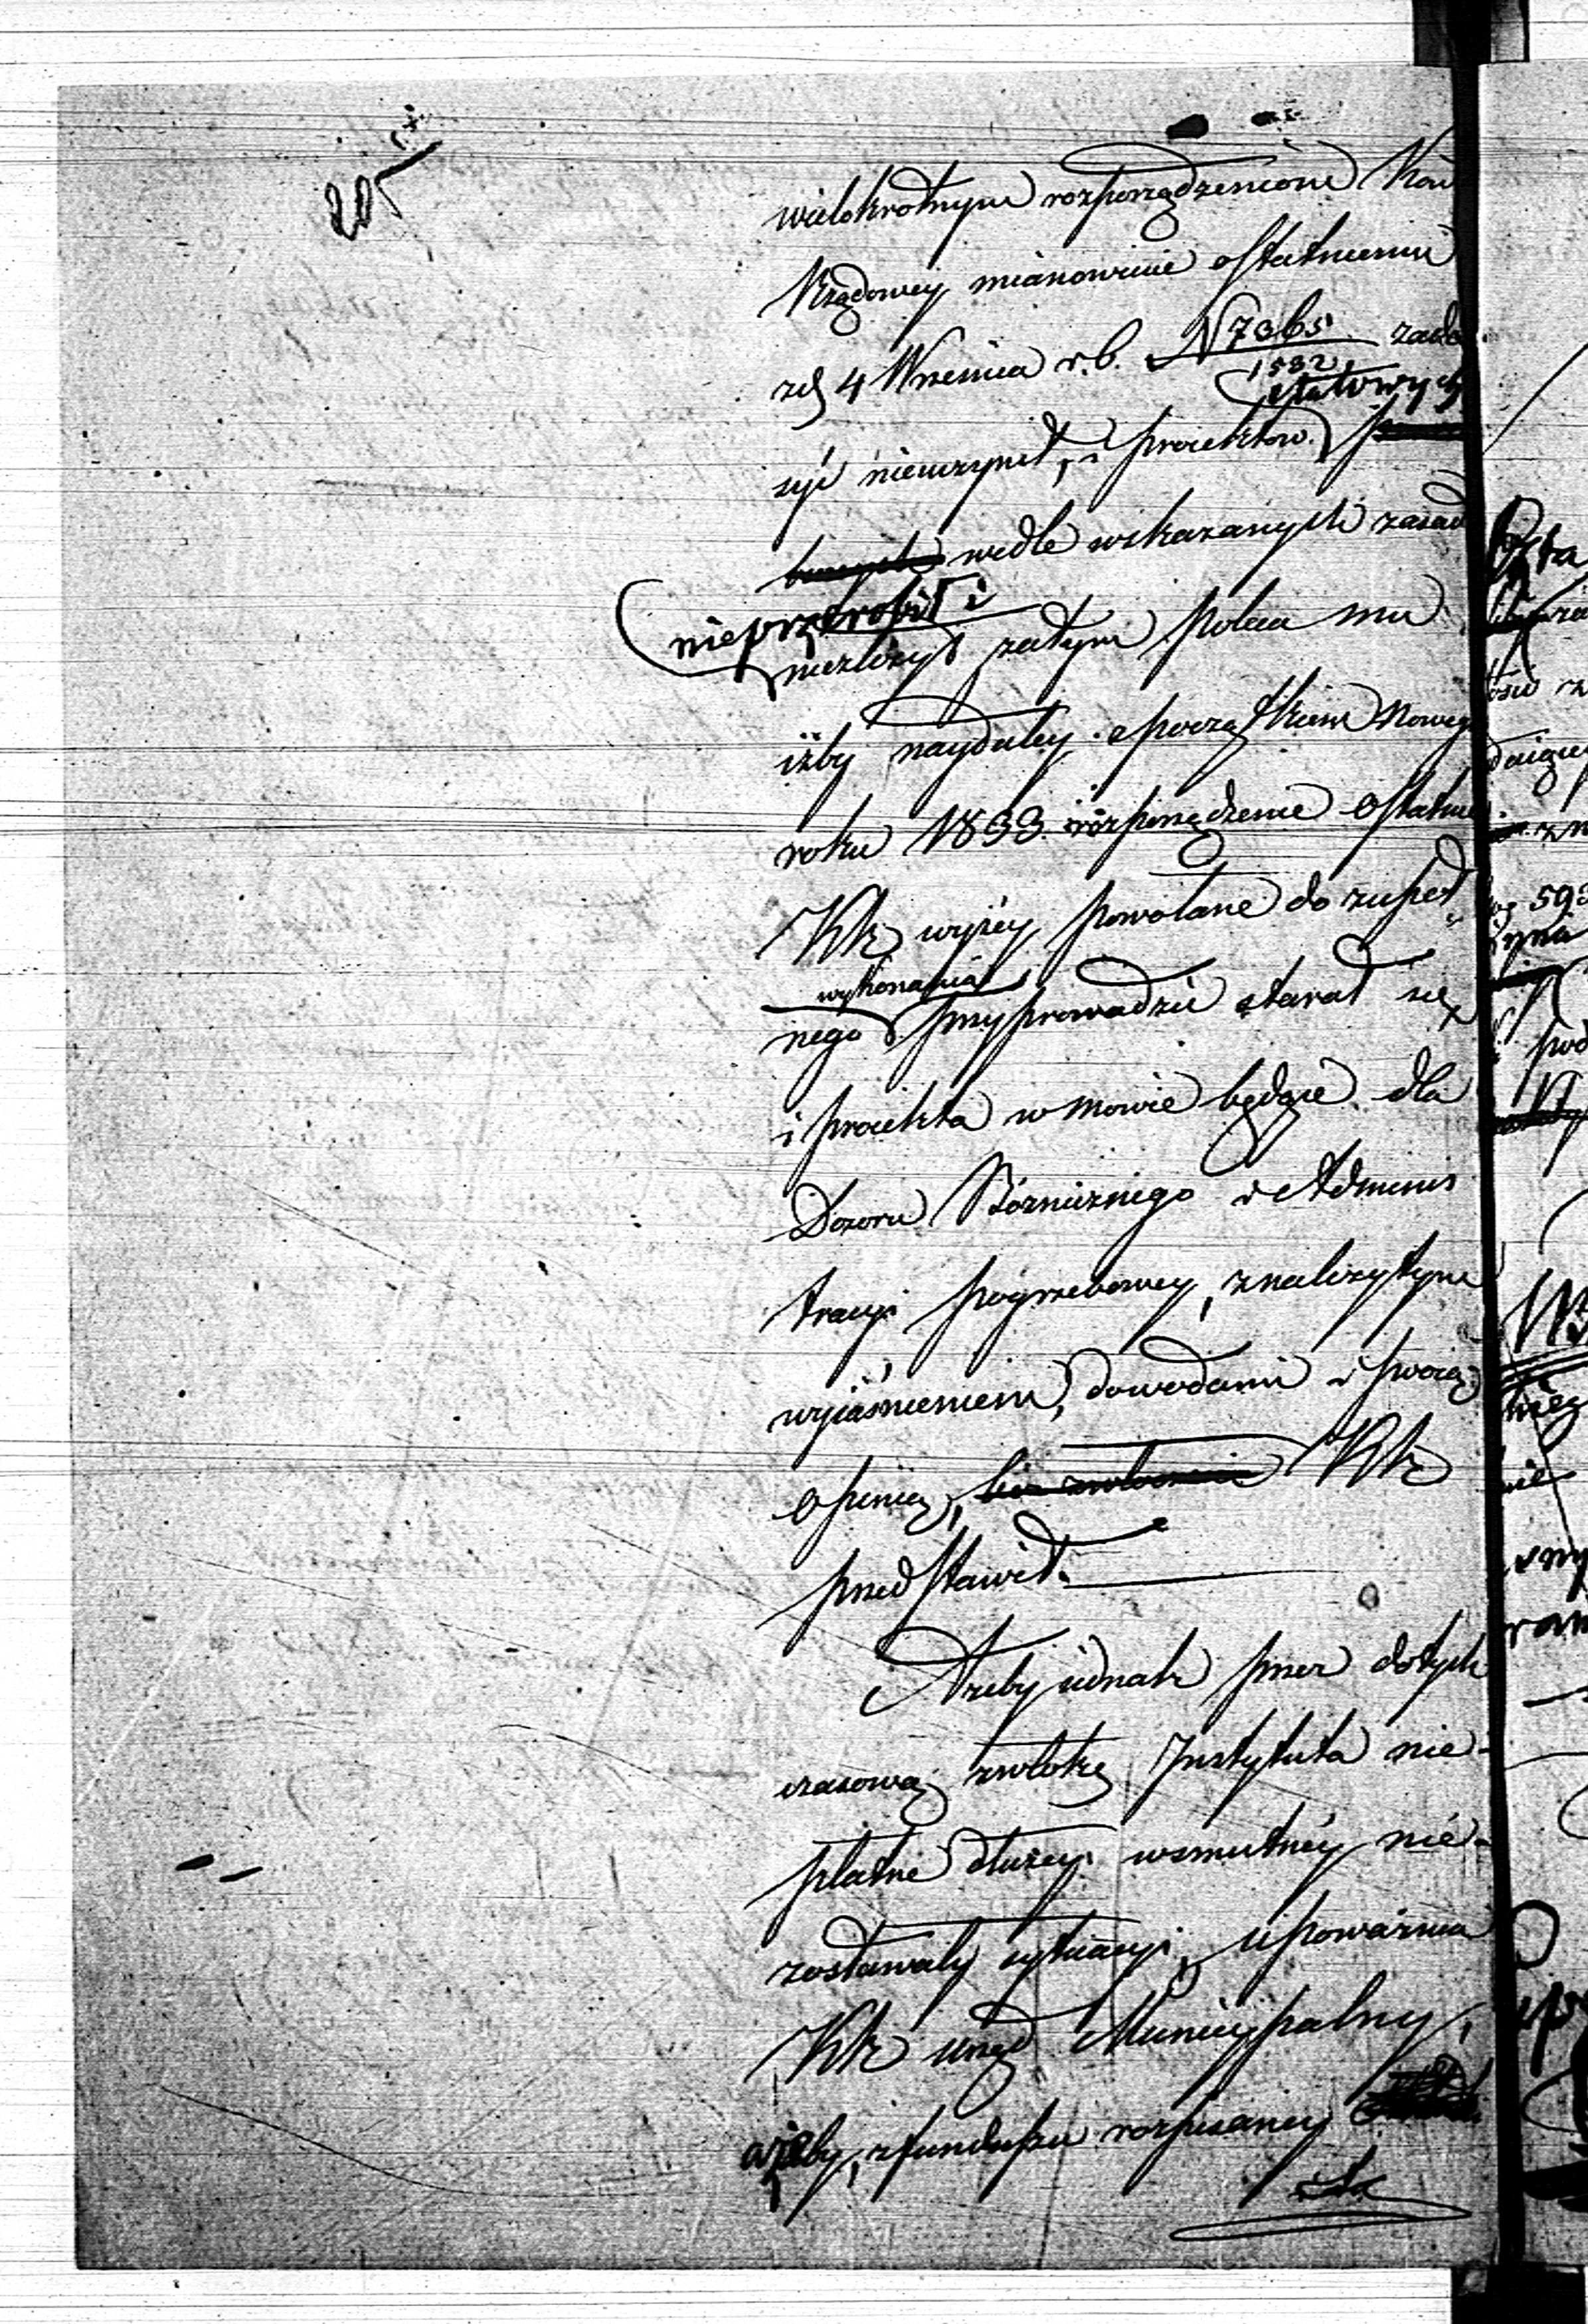 205
wielokrotnym rozporządzeniom Kom
Rządowey mianowicie ostatniemu
zd 4 Września r.b. N 7365 zado
1532
etatowych
syć nieuczynił, i proiektow
wedle wskazanych zasad
nieprzerobił i
niezłożył zatym poleca mu
iżby naydaley z początkiem Nowego
roku 1833 rozporządzenie ostatnie
KR wyżey powołane do zupeł
wykonania
nego przyprowadzić starał się
i proiekta w mowie będące dla
Dozoru Bóżniczego i Adminis
tracyi pogrzebowey, z należytym
wyiaśnieniem, dowodami i swoią
opinią, bez zwłocznie KR
przedstawił.
Ażeby iednak przez dotych
czasową zwłokę Instytuta nie-
płatne dłużey w smutney nie-
zostawały sytuacyi, upoważnia
KR urząd Municypalny,
ażeby, z funduszu rozpisaney